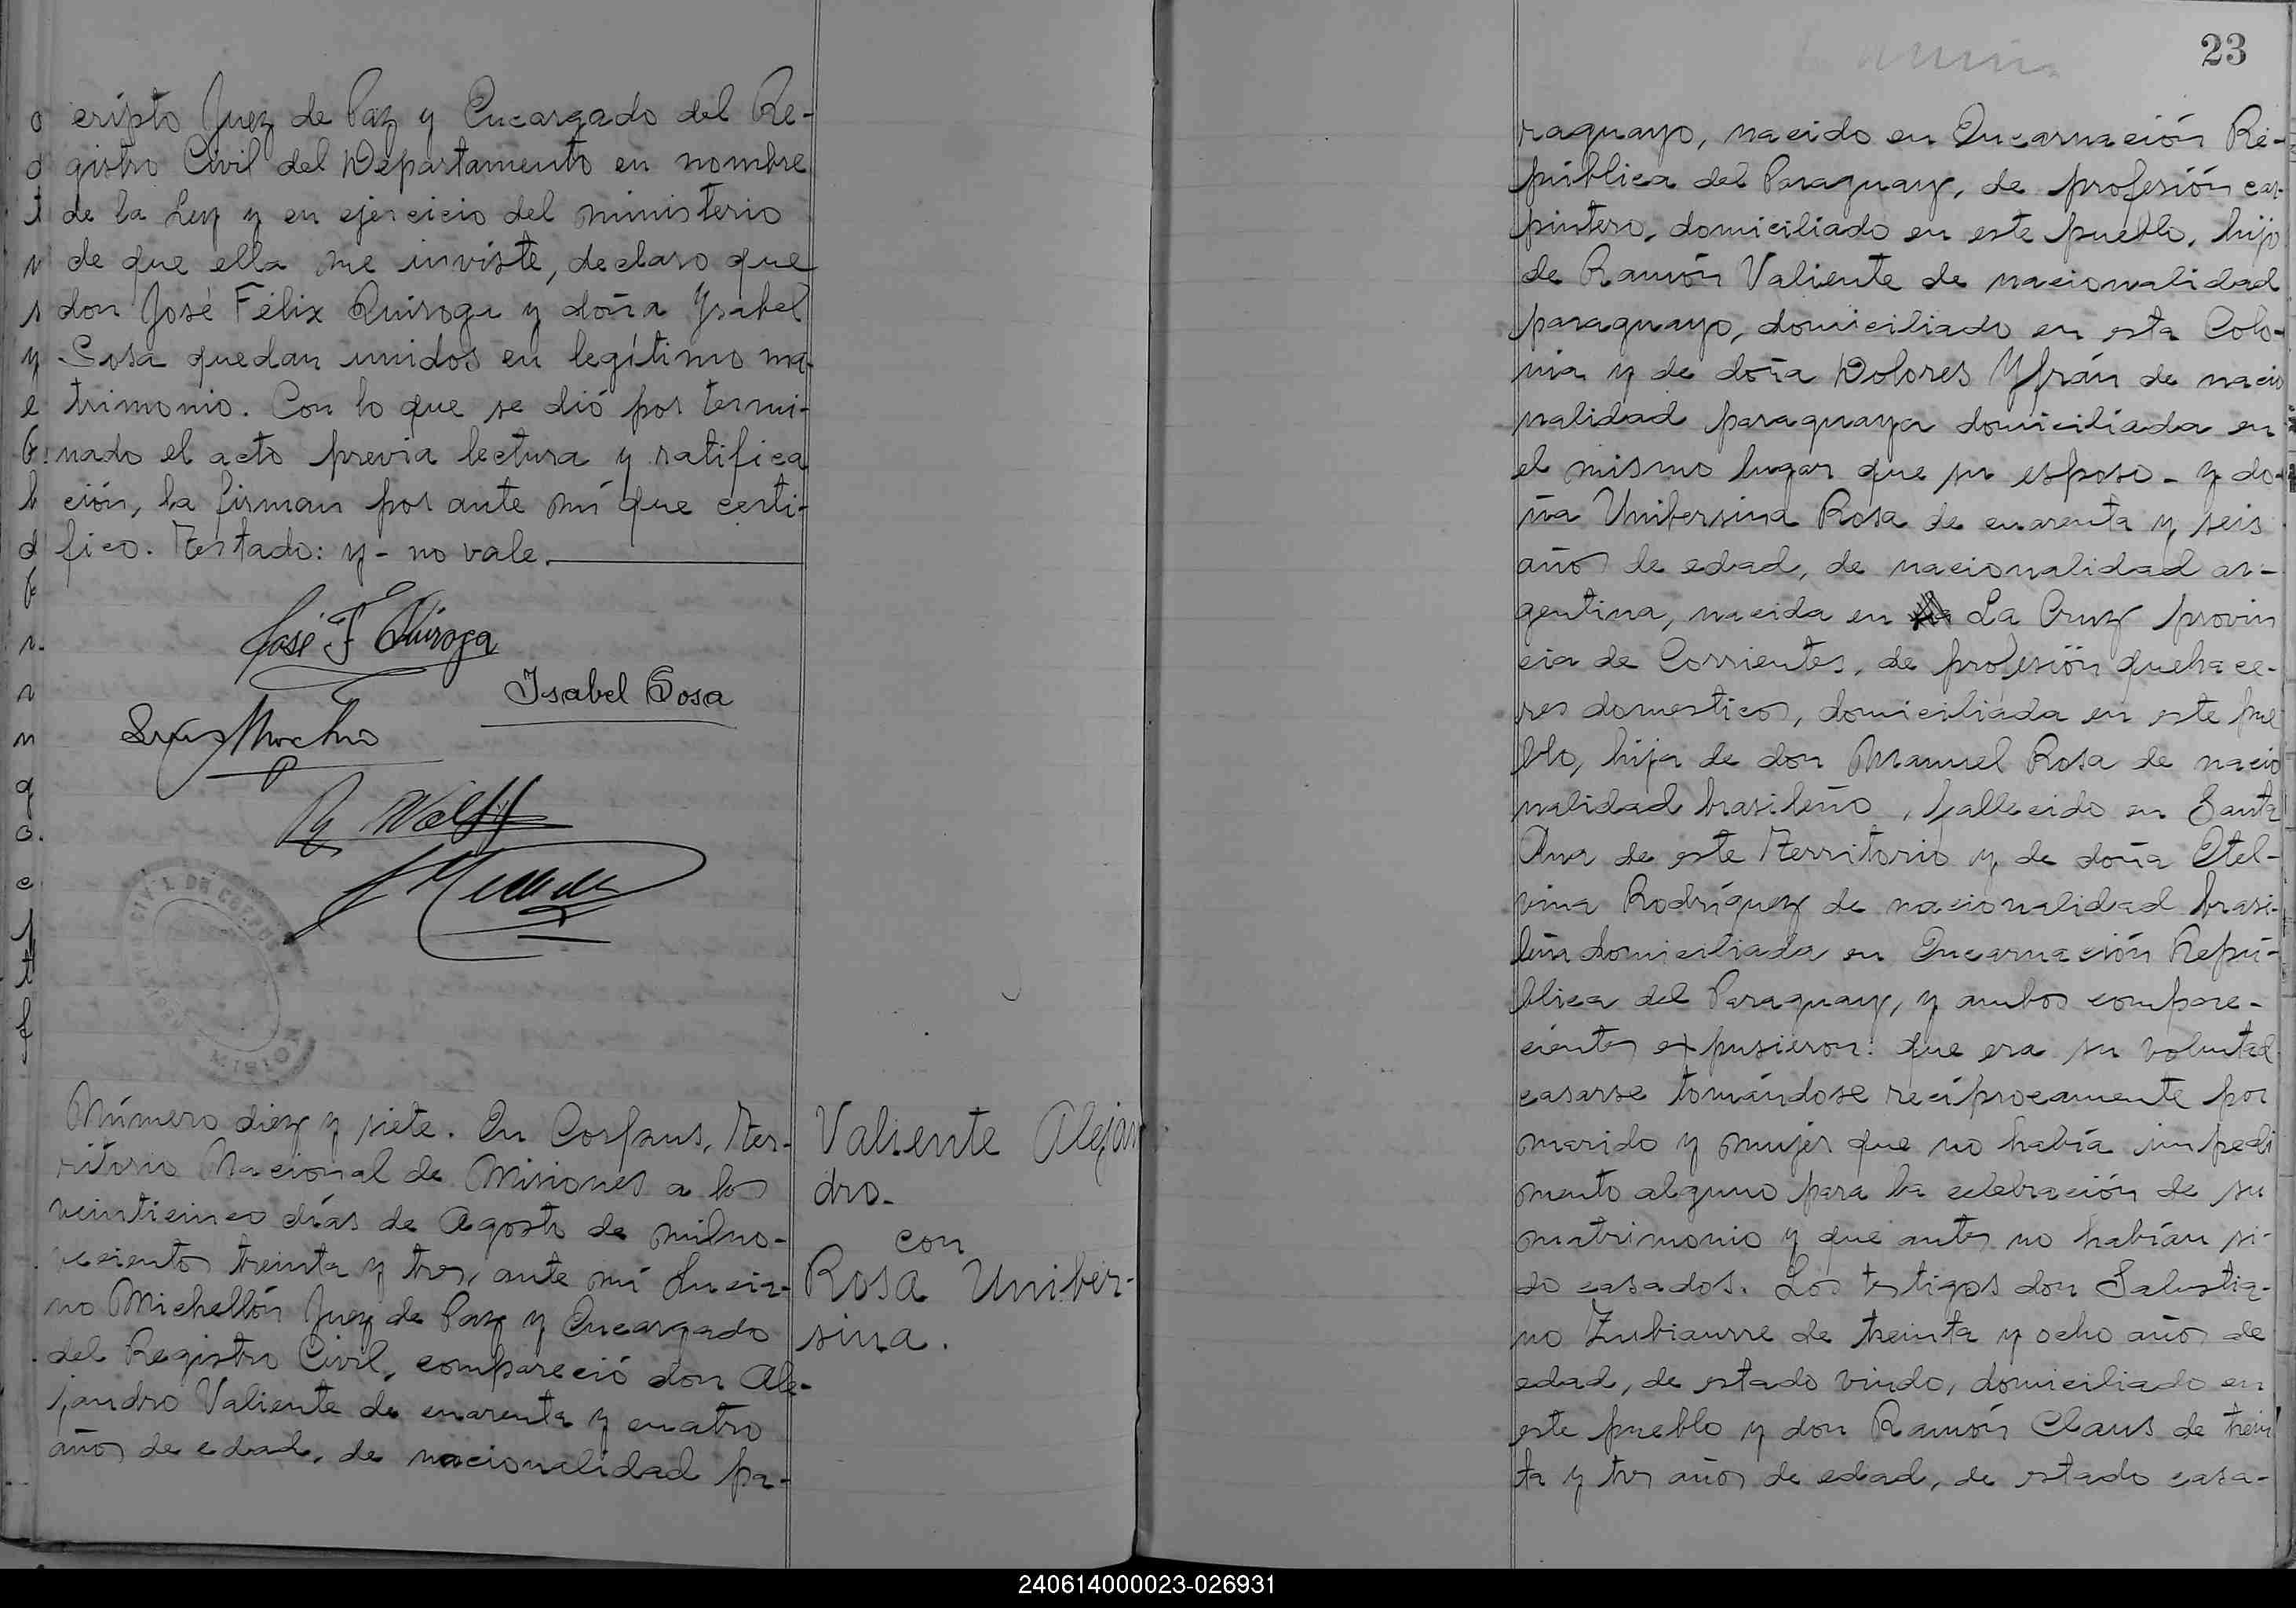 cripto Juez de Paz y Encargado del Re-
gistro Civil del Departamento en nombre
de la Ley y en ejercicio del ministerio
de que ella me inviste, declaro que
don José Félix Quiroga y doña Ysabel
Sosa quedan unidos en legítimo ma-
trimonio. Con lo que se dió por termi-
nado el acto previa lectura y ratifica
ción, la firman por ante mí que certi-
fico. Testado: y - no vale.
José F Quiroga
Isabel Sosa
CIVIL DE CORPUS
MISIO
Número diez y siete. En Corpus, Ter-
ritorio Nacional de Misiones a los
veinticinco días de Agosto de milno-
vecientos treinta y tres, ante mí Lucia-
no Michellón Juez de Paz y Encargado
del Registro Civil, compareció don Ale-
jandro Valiente de cuarenta y cuatro
años de edad, de nacionalidad pa-
Valiente Alejan
dro-
con
Rosa Uniber-
sina.
23
raguayo, nacido en Encarnación Re-
pública del Paraguay, de profesión car-
pintero, domiciliado en este pueblo, hijo
de Ramón Valiente de nacionalidad
paraguayo, domiciliado en esta Colo-
nia y de doña Dolores Yfrán de nacio
nalidad paraguaya domiciliada en
el mismo lugar que su esposo - y do-
ña Unibersina Rosa de cuarenta y seis
años de edad, de nacionalidad ar-
gentina, nacida en La Cruz provin
cia de Corrientes, de profesión quehace-
res domesticos, domiciliada en este pue
blo, hija de don Manuel Rosa de nacio
nalidad brasileño, fallecido en Santa
Ana de este Territorio y de doña Etel-
vina Rodríguez de nacionalidad brasi-
leña domiciliada en Encarnación Repú-
blica del Paraguay, y ambos compare-
cientes expusieron: que era su voluntad
casarse tomándose recíprocamente por
marido y mujer que no había impedi
mento alguno para la celebración de su
matrimonio y que antes no habían si-
do casados. Los testigos don Salustia-
no Zubiaurre de treinta y ocho años de
edad, de estado viudo, domiciliado en
este pueblo y don Ramón Claus de trein
ta y tres años de edad, de estado casa-
240614000023-026931